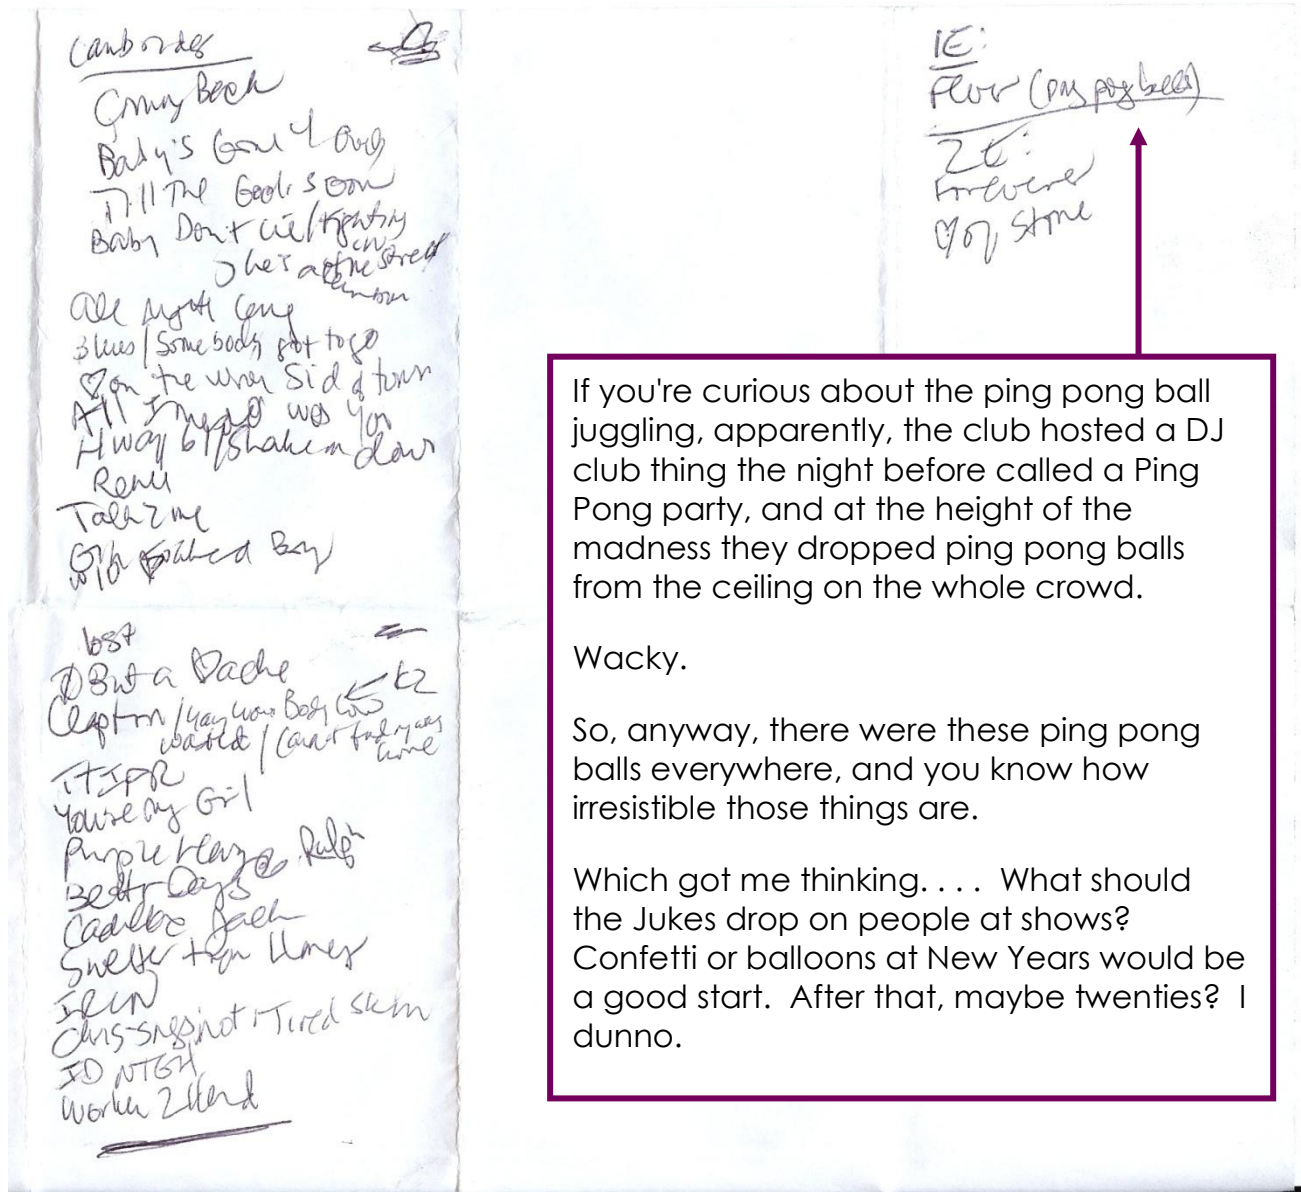 Cambridge
Coming Back
Baby's Gone & Over
Till The Good is Gone
Baby Don't Lie / Fighting
She's at the Street
All Night Long
Blues / Somebody got to go
♡ on the wrong Side of town
All I needed was You
Hiway 61 / Shake em down
Talk 2 me
Girls Boy
lost
But a ♡ache
Clapton / Hang Your Body Low
wasted / Can't find my way
home
ITIPR
You're my Girl
Purple Haze Ralph
Better Days
Cadillac Jack
Sweeter than Honey
Chris-singin not + Tired skin
ID NTGH
Workin 2 Hard
1E:
Fever (ping pong balls)
2E:
Forever
♡ of Stone
If you're curious about the ping pong ball
juggling, apparently, the club hosted a DJ
club thing the night before called a Ping
Pong party, and at the height of the
madness they dropped ping pong balls
from the ceiling on the whole crowd.
Wacky.
So, anyway, there were these ping pong
balls everywhere, and you know how
irresistible those things are.
Which got me thinking. . . .  What should
the Jukes drop on people at shows?
Confetti or balloons at New Years would be
a good start.  After that, maybe twenties?  I
dunno.